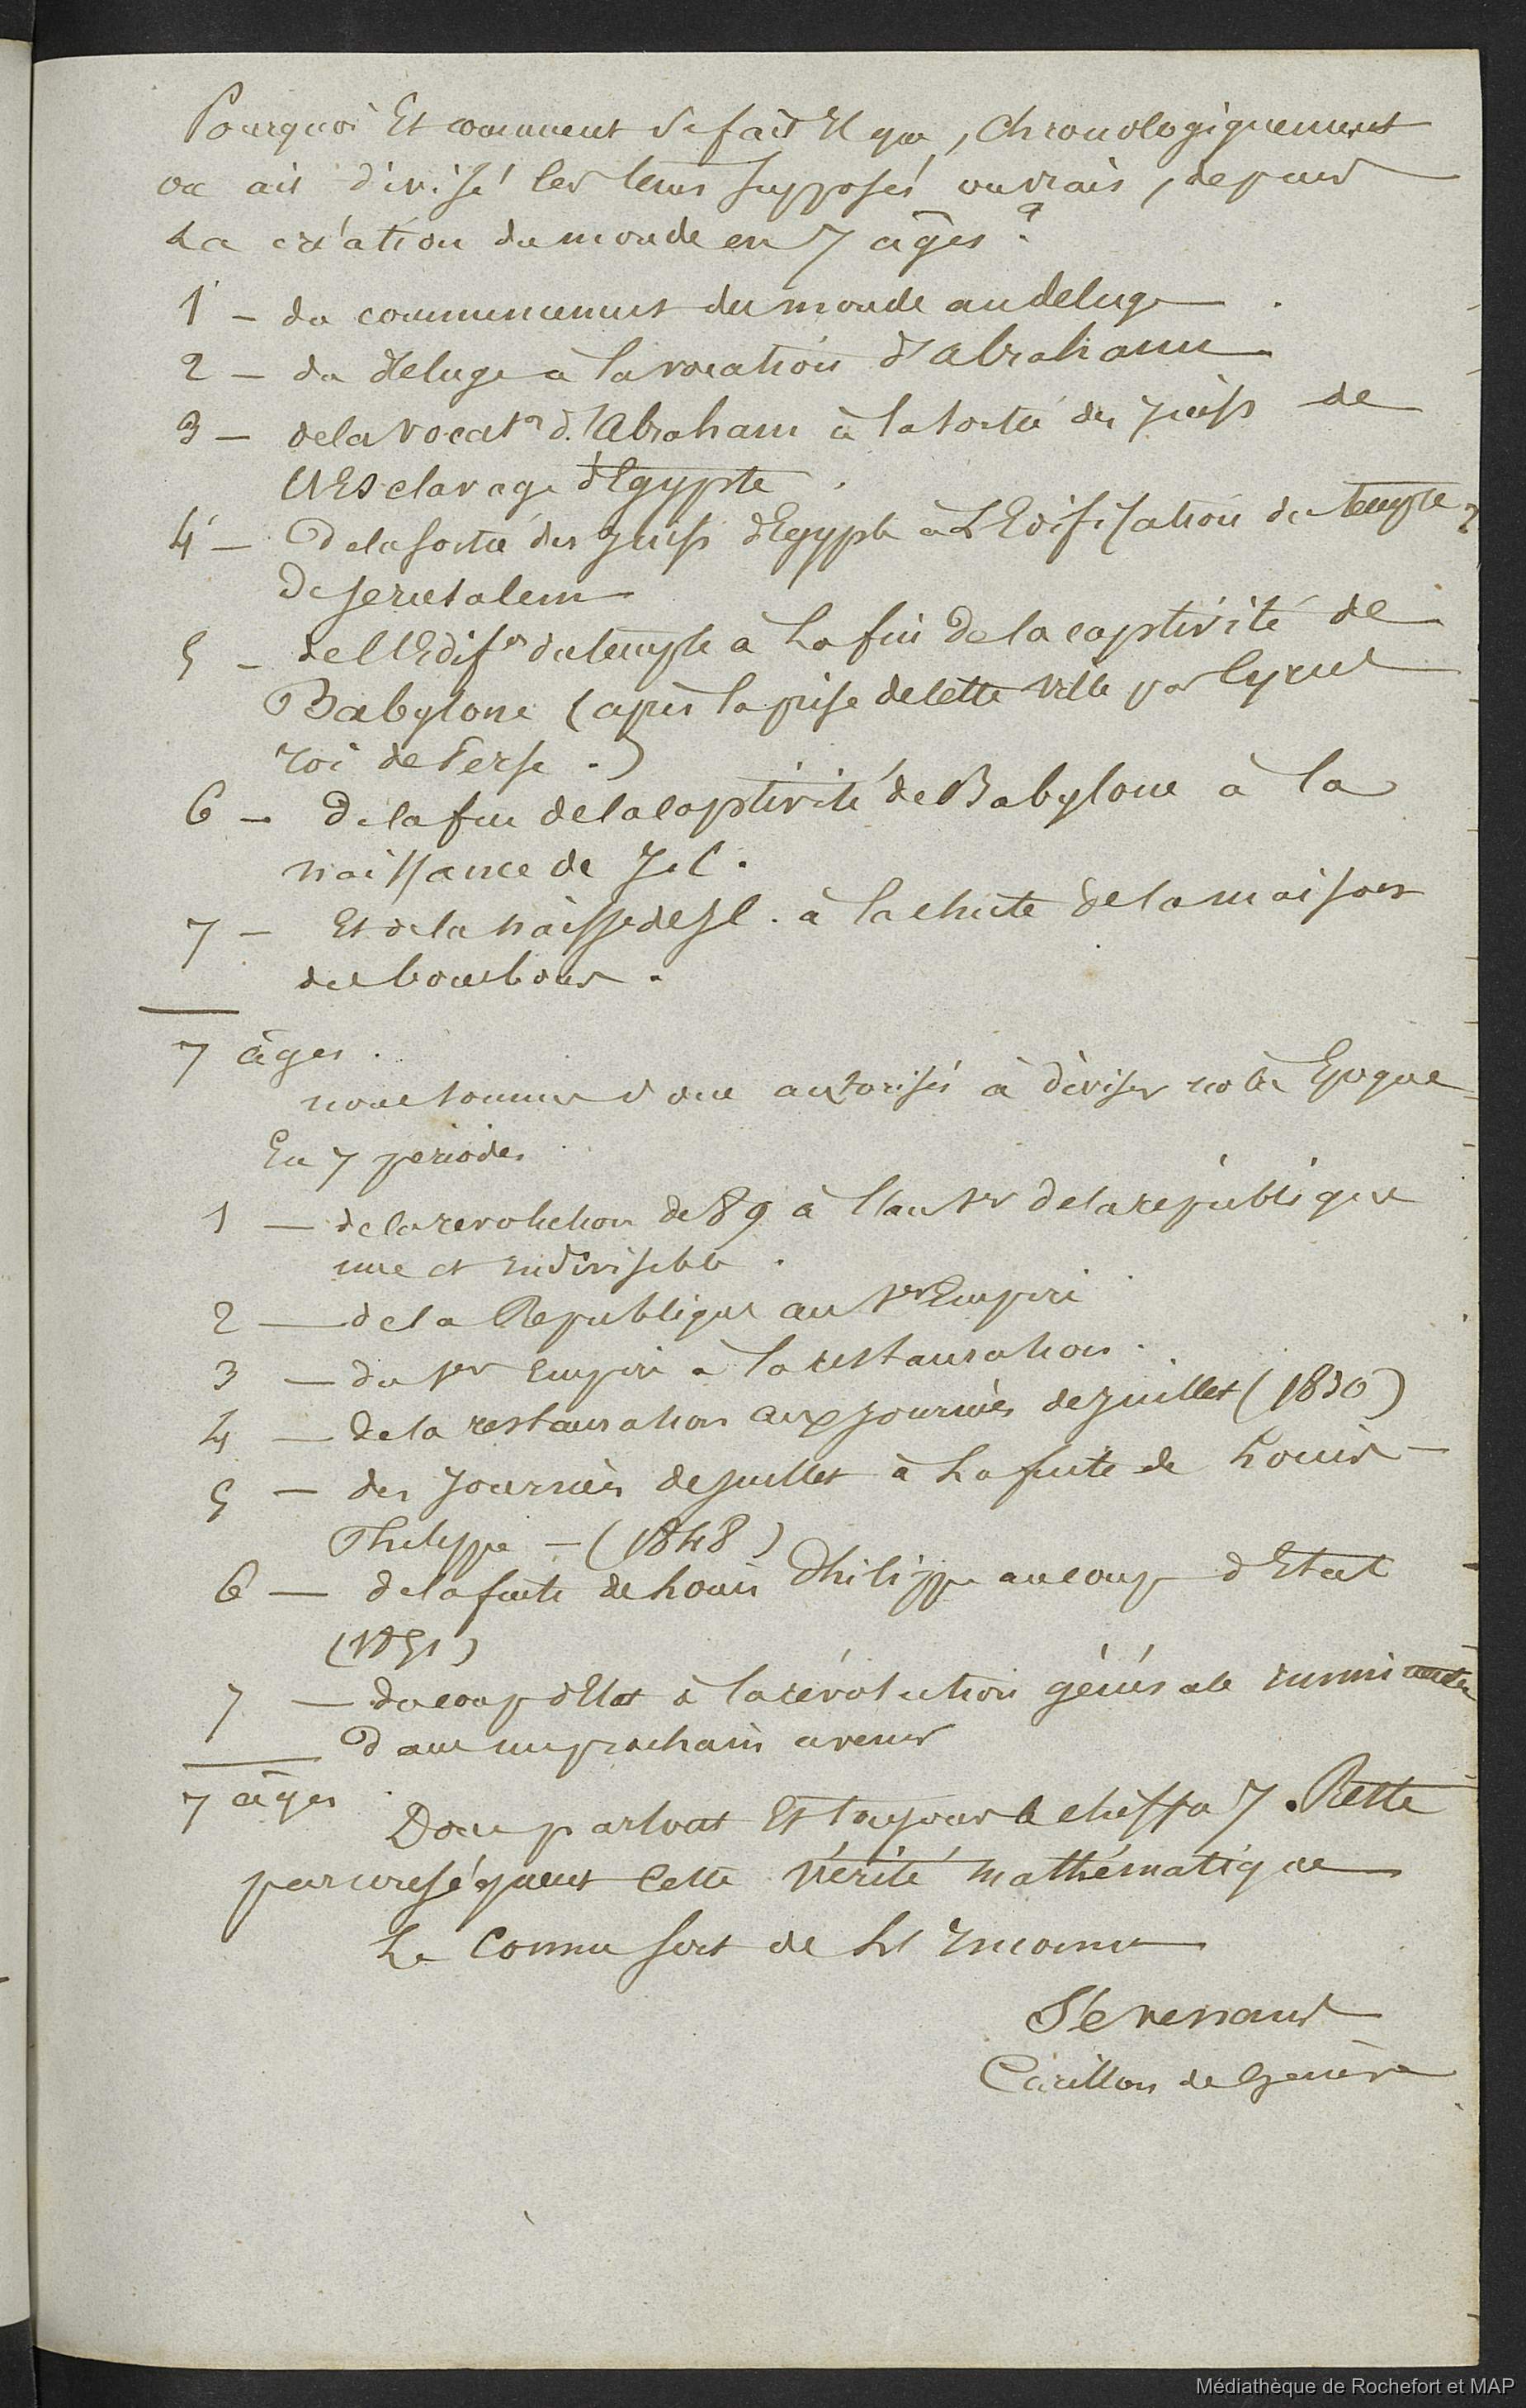 Pourquoi Et comment se fait Il que, Chronologiquement
on ait divisé les tems supposés ou vrais, depuis
La création du monde en 7 âges ?
1 - du commencement du monde au deluge.
2 - du deluge à la vocation d'Abraham
3 - de la vocatn d'Abraham à la sortie des juifs de
l'Esclavage d'Egypte.
4 - De la sortie des Juifs d'Egypte à L'Edification du temple
De Jerusalem
5 - de l'Edifon du temple à La fin de la captivité de
Babylone (après la prise de cette ville par Cyrus
roi de Perse.)
6 - De la fin de la captivité de Babylone à la
naissance de J.C.
7 - Et de la naissce de J C. à la chute de la maison
des bourbons.
7 âges.
nous sommes donc autorisés à diviser notre Epoque
En 7 periodes
1 - de la revolution de 89 à l'an 1er de la république
une et indivisible.
2 - de la Republique au 1er Empire
3 - du 1er Empire a la restauration.
4 - de la restauration aux journées de juillet (1830)
5 - des journées de juillet à La fuite de Louis
Philippe - (1848)
6 - de la fuite de Louis Philippe au coup d'Etat
(1851)
7 - du coup d'Etat à la révolution générale
dans un prochain avenir
7 âges.
Donc partout Et toujours le chiffre 7. Reste
par conséquent cette vérité mathématique
Le Connu sort de L'Inconnu
Carillon de Genève
Médiathèque de Rochefort et MAP